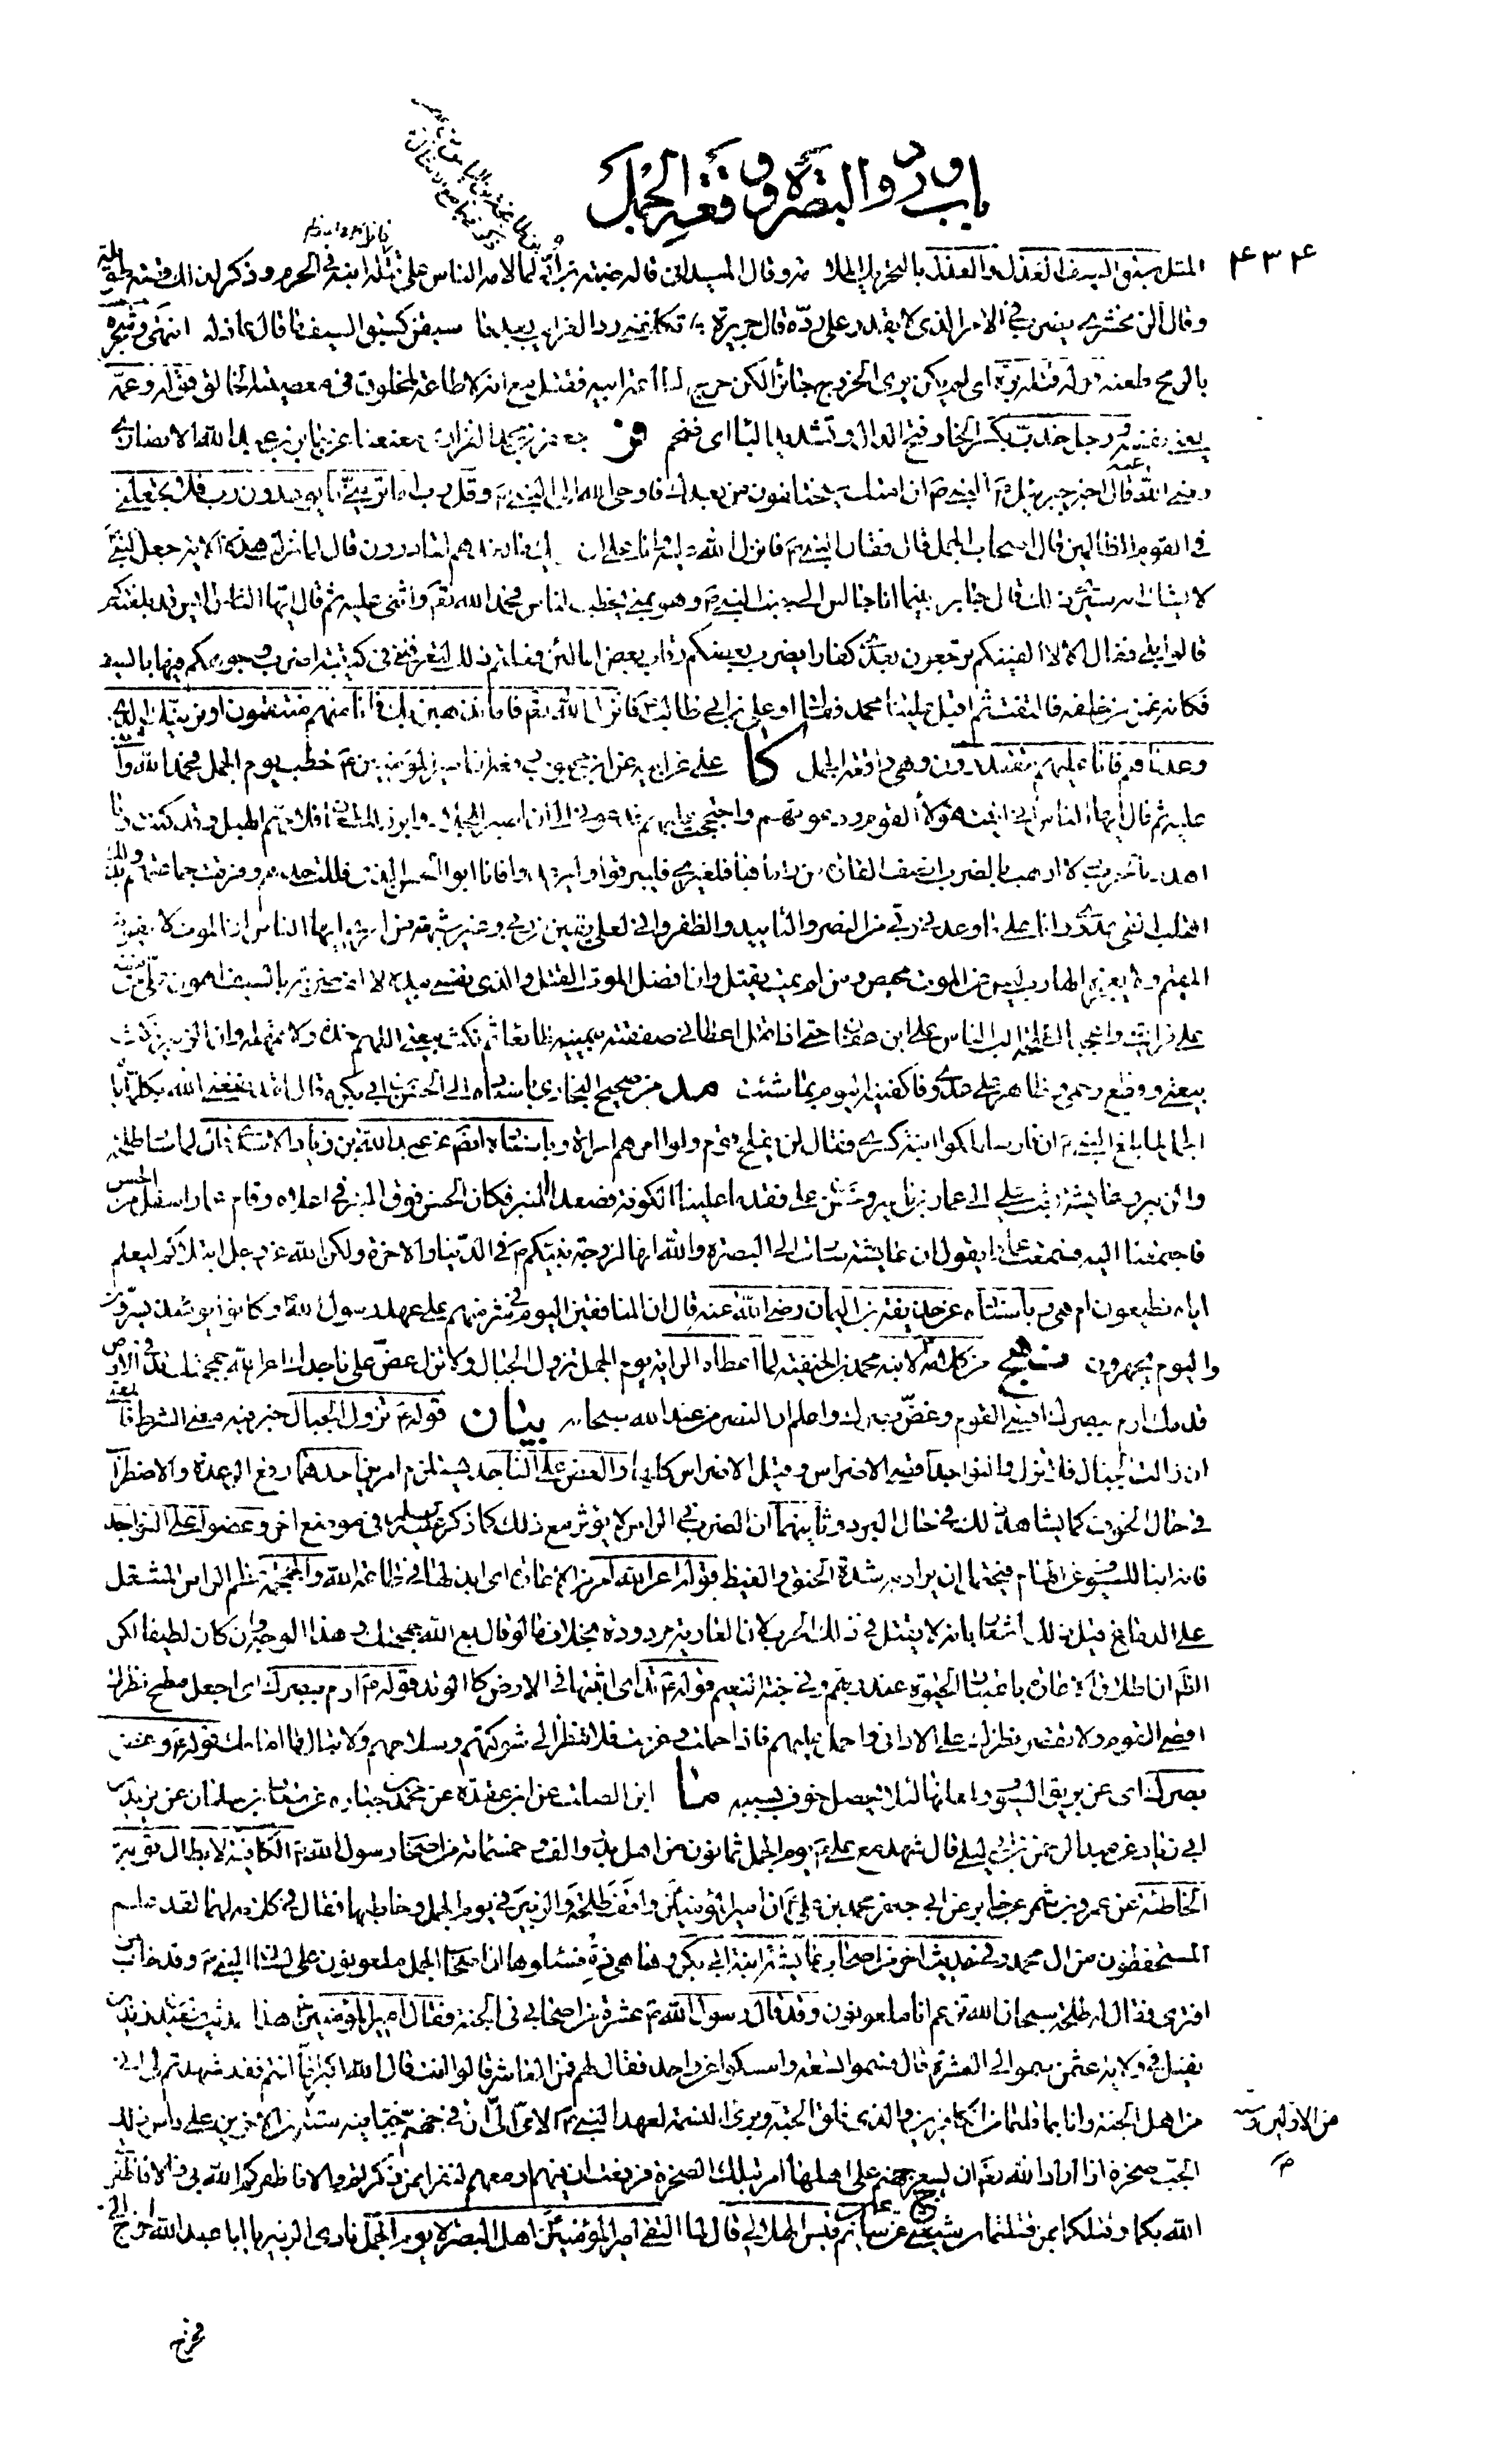 باب ورود البصرة ووقعة الجمل
۴۳۴
المثل سبق السيف العذل والعذل بالتحريك الملامة وقال الميداني قاله ضبة لما لامه الناس على قتله قاتل ابنه في الحرم وذكر لذلك قصة طويلة
وقال الزمخشري يضرب في الامر الذي لا يقدر على رده قال جرير تكلفني رد الغرائب بعدما سبقن كسبق السيف ما قال عاذله انتهى وشجره
بالرمح طعنه قوله قتله بره اى لم يكن يرى الخروج جائزا لكن خرج لطاعة ابيه فقتل مع انه لا طاعة للمخلوق في معصية الخالق قوله وعمه
يعني نفسه ورجل خدب بكسر الخاء وفتح الدال وتشديد الباء اى ضخم فر جعفر بن محمد الفزاري معنعنا عن جابر بن عبد الله الانصاري
رضي الله عنه قال اخبر جبرئيل النبي ان امتك سيختلفون من بعدك فاوحى الله الى النبي وقل رب اما تريني ما يوعدون رب فلا تجعلني
في القوم الظالمين قال اصحاب الجمل قال فقال النبي فانزل الله عليه وانا على ان نريك ما نعدهم لقادرون قال لما نزلت هذه الاية جعل النبي
لا يشك انه سيرى ذلك قال جابر بينما انا جالس الى جنب النبي وهو بمنى يخطب الناس فحمد الله تع واثنى عليه ثم قال ايها الناس اليس قد بلغتكم
قالوا بلى فقال الا لا الفينكم ترجعون بعدي كفارا يضرب بعضكم رقاب بعض اما لئن فعلتم ذلك لتعرفنني في كتيبة اضرب وجوهكم فيها بالسيف
فكانه غمز من خلفه فالتفت ثم اقبل علينا محمد فقال او علي بن ابي طالب فانزل الله تع فاما نذهبن بك فانا منهم منتقمون او نرينك الذي
وعدناهم فانا عليهم مقتدرون وهي واقعة الجمل كا علي عن ابيه عن ابن محبوب رفعه ان امير المؤمنين خطب يوم الجمل فحمد الله واثنى
عليه ثم قال ايها الناس اني اتيت هؤلاء القوم ودعوتهم واحتججت عليهم فدعوني الى ان اصبر للجلاد وابرز للطعان فلامهم الهبل وقد كنت وما
اهدد بالحرب لا ارهب بالضرب انصف القارة من راماها فلغيري فليبرقوا وليرعدوا فانا ابو الحسن الذي فللت حدهم وفرقت جماعتهم وبذلك
القلب القى عدوي وانا على ما وعدني ربي من النصر والتاييد والظفر واني لعلى يقين من ربي وغير شبهة من امري ايها الناس ان الموت لا يفوته
المقيم ولا يعجزه الهارب ليس عن الموت محيص ومن لم يمت يقتل وان افضل الموت القتل والذي نفسي بيده لالف ضربة بالسيف اهون علي من ميتة
على فراش واعجبا لطلحة الب الناس على ابن عفان حتى اذا قتل اعطاني صفقته بيمينه طائعا ثم نكث بيعتي اللهم خذه ولا تمهله وان الزبير نكث
بيعتي وقطع رحمي وظاهر علي عدوي فاكفنيه اليوم بما شئت مد من صحيح البخاري باسناده الى الحسن عن ابي بكرة قال لقد نفعني الله بكلمة ايام
الجمل لما بلغ النبي ان فارسا ملكوا ابنة كسرى فقال لن يفلح قوم ولوا امرهم امراة وباسناده ايضا عن عبد الله بن زياد الاسدي قال لما سار طلحة
والزبير وعايشة بعث علي الى عمار بن ياسر وحسن بن علي فقدما علينا الكوفة فصعدا المنبر فكان الحسن فوق المنبر في اعلاه وقام عمار اسفل من الحسن
فاجتمعنا اليه فسمعت عمارا يقول ان عايشة سارت الى البصرة والله انها لزوجة نبيكم في الدنيا والاخرة ولكن الله عز وجل ابتلاكم ليعلم
اياه تطيعون ام هي وباسناده عن حذيفة بن اليمان رضي الله عنه قال ان المنافقين اليوم شر منهم على عهد رسول الله كانوا يومئذ يسرون
واليوم يجهرون نهج من كلام له لابنه محمد بن الحنفية لما اعطاه الراية يوم الجمل تزول الجبال ولا تزل عض على ناجذك اعر الله جمجمتك تد في الارض
قدمك ارم ببصرك اقصى القوم وغض بصرك واعلم ان النصر من عند الله سبحانه بيان قوله تزول الجبال خبر فيه معنى الشرط فالمعنى
ان زالت الجبال فلا تزل والنواجذ اقصى الاضراس وقيل الاضراس كلها والعض على الناجذ يستلزم امرين احدهما رفع الرعدة والاضطراب
في حال الخوف كما يشاهد ذلك في حال البرد وثانيهما ان الضرب في الراس لا يؤثر مع ذلك كما ذكر في موضع اخر وعضوا على النواجذ
فانه انبا للسيوف عن الهام فيحتمل ان يراد به شدة الحنق والغيظ قوله اعر الله امر من الاعارة اى ابذلها في طاعة الله والجمجمة عظم الراس المشتمل
على الدماغ قيل في ذلك اشعار بانه لا يقتل في ذلك الحرب لان العارية مردودة بخلاف ما لو قال بع الله جمجمتك وهذا الوجه وان كان لطيفا لكن
الظ ان اطلاق الاعارة باعتبار الحيوة عند ربهم وفي جنة النعيم قوله تد اى اثبتها في الارض كالوتد قوله ارم ببصرك اى اجعل مطمح نظرك
اقصى القوم ولا تقصر نظرك على الاداني واحمل عليهم فاذا حملت وعزمت فلا تنظر الى شوكتهم وسلاحهم ولا تبال ما امامك قوله وغض
بصرك اى عن بريق السيوف ولمعانها لئلا يحصل خوف بسببه ما ابن الصلت عن ابن عقدة عن محمد بن جبارة عن سعاد بن سلمان عن يزيد بن
ابي زياد عن عبد الرحمن بن ابي ليلى قال شهد مع علي يوم الجمل ثمانون من اهل بدر والف وخمسمائة من اصحاب رسول الله الكافية لابطال توبة
الخاطئة عن عمرو بن شمر عن جابر عن ابي جعفر محمد بن علي ان امير المؤمنين واقف طلحة والزبير في يوم الجمل وخاطبهما فقال في كلامه لهما لقد علم
المستحفظون من ال محمد وفي حديث اخر من اصحاب عايشة ابنة ابي بكر وها هي ذه فسئلوها ان اصحاب الجمل ملعونون على لسان النبي وقد خاب من
افترى فقال له طلحة سبحان الله تزعم انا ملعونون وقد قال رسول الله عشرة من اصحابي في الجنة فقال امير المؤمنين هذا حديث سعيد بن زيد بن
نفيل في ولاية عثمن سموا الي العشرة قال فسموا تسعة وامسكوا عن واحد فقال لهم فمن العاشر قالوا انت قال الله اكبر اما انتم فقد شهدتم لي اني
من اهل الجنة وانا بما قلتما من الكافرين والذي فلق الحبة وبرئ النسمة لعهد النبي الامي الي ان في جهنم جبا فيه ستة من الاولين وستة من الاخرين على راس ذلك
الجب صخرة اذا اراد الله تع ان يسعر جهنم على اهلها امر بتلك الصخرة فرفعت ان فيهم او معهم لنفرا ممن ذكرتم والا فاظفركم الله بي والا فاظفرني
الله بكما وقتلكما بمن قتلتما من شيعتي ج عن سليم بن قيس الهلالي قال لما التقى امير المؤمنين اهل البصرة يوم الجمل نادى الزبير يا ابا عبد الله اخرج الي
فخرج